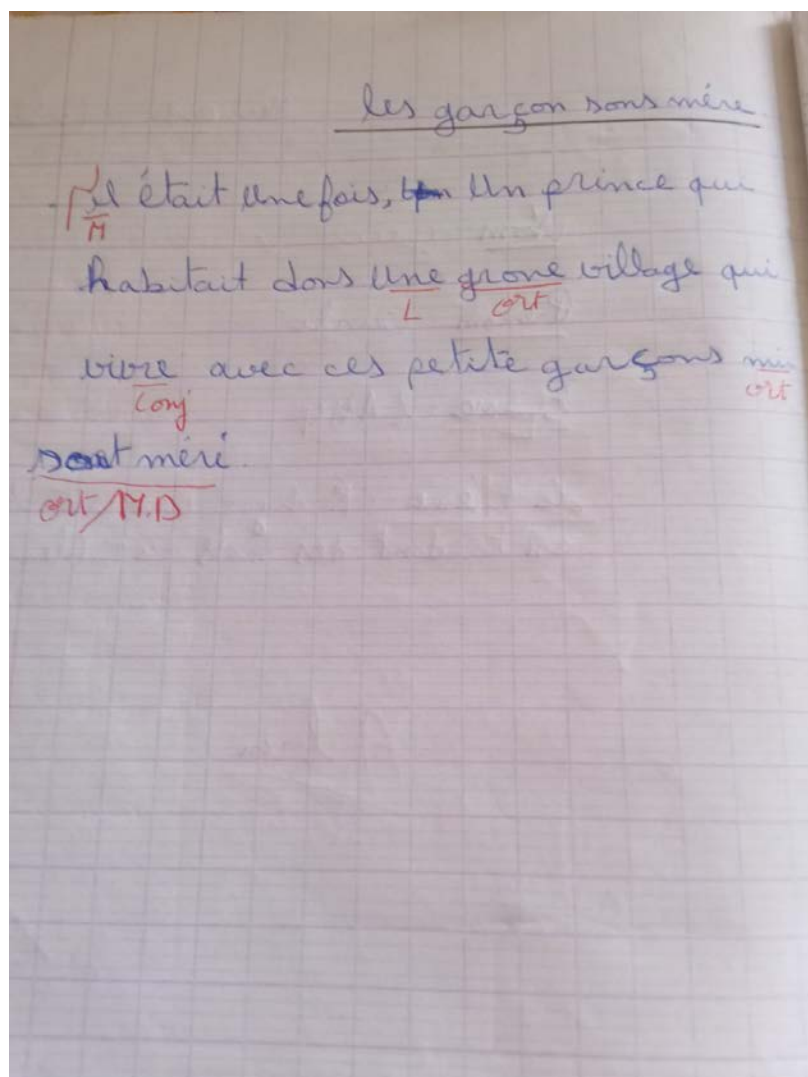 les garçon sons mére
il était une fois, Un prince qui
M
habitait dons Une grone village qui
L ort
vivre avec ces petite garçons min
Conj ort
sont méré.
ort/M.D